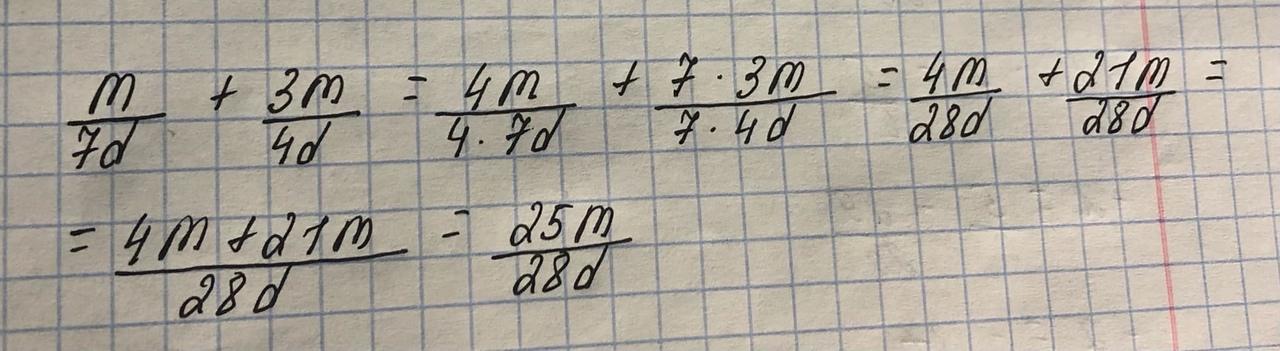 m/7d + 3m/4d = 4m/4·7d + 7·3m/7·4d = 4m/28d + 21m/28d =
= 4m+21m/28d = 25m/28d